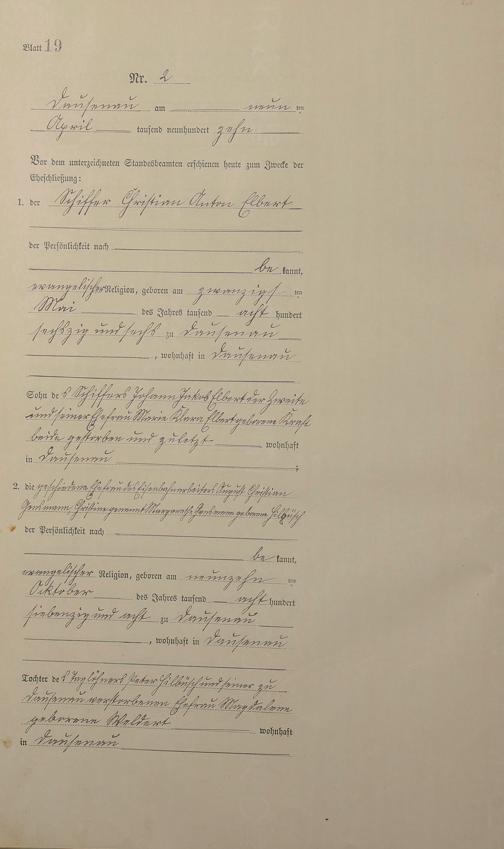 Blatt 19
Nr. 2
Dausenau am neun ten
April tausend neunhundert zehn
Vor dem unterzeichneten Standesbeamten erschienen heute zum Zwecke der
Eheschließung:
1. der Schiffer Christian Anton Elbert
der Persönlichkeit nach
be kannt,
evangelischer Religion, geboren am zwanzigs ten
Mai des Jahres tausend acht hundert
sechszig und sechs zu Dausenau
, wohnhaft in Dausenau
Sohn des Schiffers Johann Jakob Elbert der Zweite
und seiner Ehefrau Marie Klara Elbert geborene Kraft
beide gestorben und zuletzt wohnhaft
in Dausenau ;
2. die geschiedene Ehefrau des Eisenbahnarbeiters August Christian
Christine genannt Margarethe geborene Hilbüsch
der Persönlichkeit nach
be kannt,
evangelischer Religion, geboren am neunzehn ten
Oktober des Jahres tausend acht hundert
siebenzig und acht zu Dausenau
, wohnhaft in Dausenau
Tochter des Taglöhners Peter Hilbüsch und seiner zu
Dausenau verstorbenen Ehefrau Magdalene
geborene Weldert wohnhaft
in Dausenau